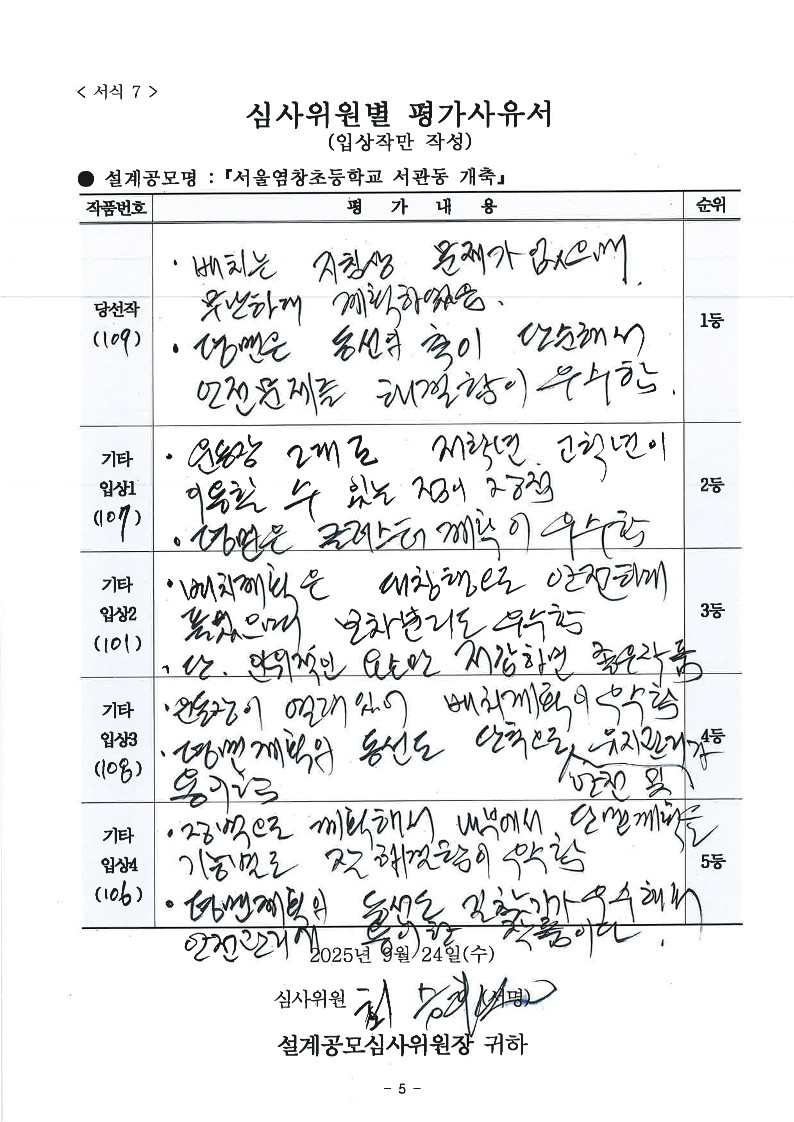 < 서식 7 >
심사위원별 평가사유서
(입상작만 작성)
● 설계공모명 : 『서울염창초등학교 서관동 개축』
작품번호 평 가 내 용 순위
당선작
(109)
· 배치는 지침상 문제가 없으며
무난하게 계획하였음.
· 평면은 동선의 축이 단순해서
안전문제를 해결함이 우수함.
1등
기타
입상1
(107)
· 운동장 2개로 저학년 고학년이
이용할 수 있는 점이 장점
· 평면은 클러스터 계획이 우수함
2등
기타
입상2
(101)
· 배치계획은 안전하게
보차분리도 우수함
· 단, 좋은작품
3등
기타
입상3
(108)
· 운동장이 열려있어 배치계획이 우수함
· 평면계획의 동선도 단축으로 유지관리가
안전 및
용이
4등
기타
입상4
(106)
· 계획해서 내부에서 단면계획을
기능별로 잘 해결함이 우수함
· 평면계획의 동선도 우수해서
안전관리에 용이한 작품이다.
5등
2025년 9월 24일(수)
심사위원 (서명)
설계공모심사위원장 귀하
- 5 -